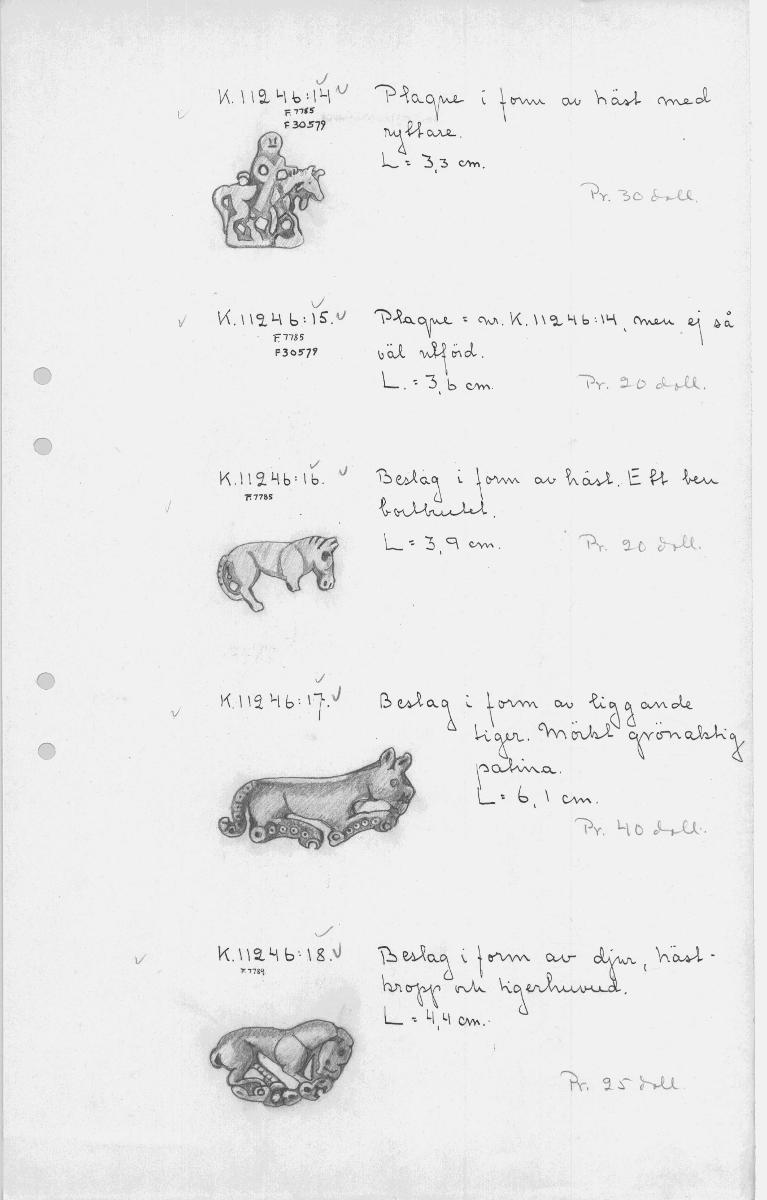 K.11246:14 Plaque i form av häst med
F.7785
F30579 ryttare.
L = 3,3 cm.
Pr. 30 doll.
K.11246:15. Plaque = nr. K.11246:14, men ej så
F.7785
F30579 väl utförd.
L. = 3,6 cm. Pr. 20 doll.
K.11246:16. Beslag i form av häst. Ett ben
F.7785
bortbrutet.
L = 3,9 cm. Pr. 20 doll.
K.11246:17. Beslag i form av liggande
tiger. Mörkt grönaktig
patina.
L = 6,1 cm.
Pr. 40 doll.
K.11246:18. Beslag i form av djur, häst-
F.7789
kropp och tigerhuvud.
L = 4,4 cm.
Pr. 25 doll.